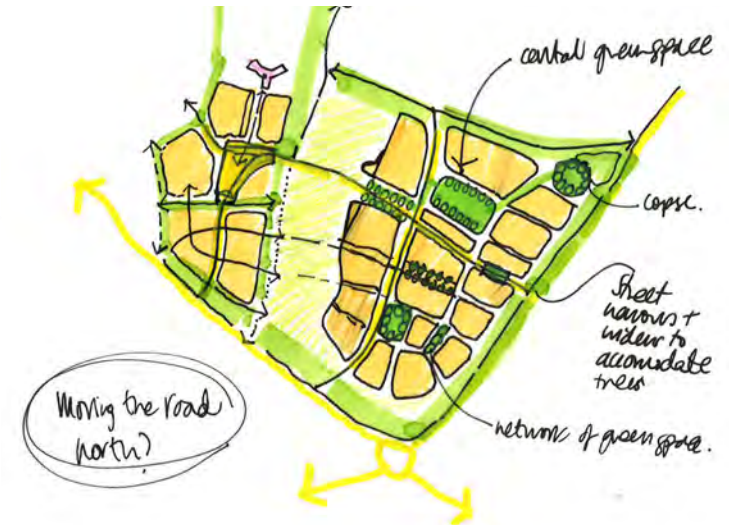 central greenspace
copse.
Street
narrows +
widens to
accomodate
trees
network of greenspace.
Moving the road
north?